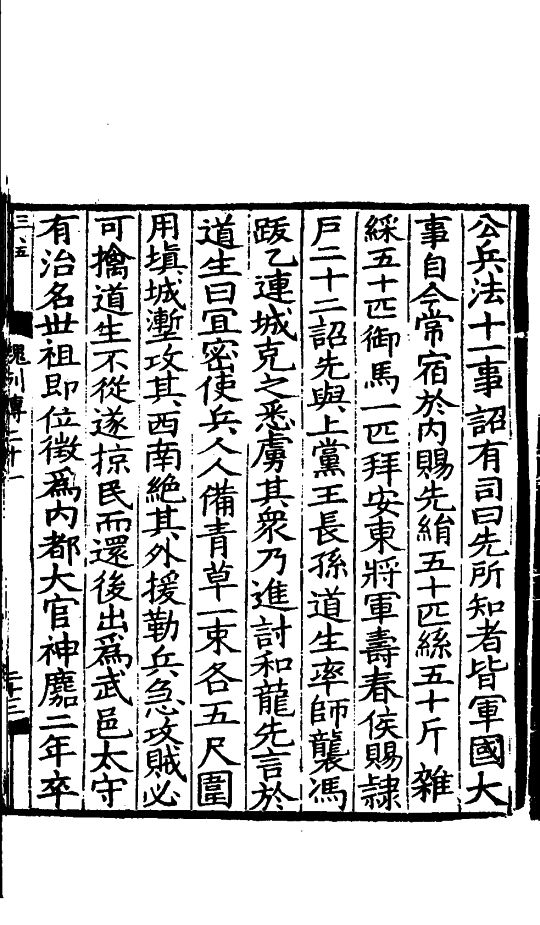 公兵法十一事詔有司曰先所知者皆軍國大
事自今常宿於内賜先絹五十匹絲五十斤雜
綵五十匹御馬一匹拜安東將軍壽春侯賜隷
戸二十二詔先與上黨王長孫道生率師襲馮
跋乙連城克之悉虜其衆乃進討和龍先言於
道生曰宜密使兵人人備青草一束各五尺圍
用塡城塹攻其西南絶其外援勒兵急攻賊必
可擒道生不從遂掠民而還後出爲武邑太守
有治名世祖即位徵爲内都大官神䴥二年卒
魏列傳二十一
二十三